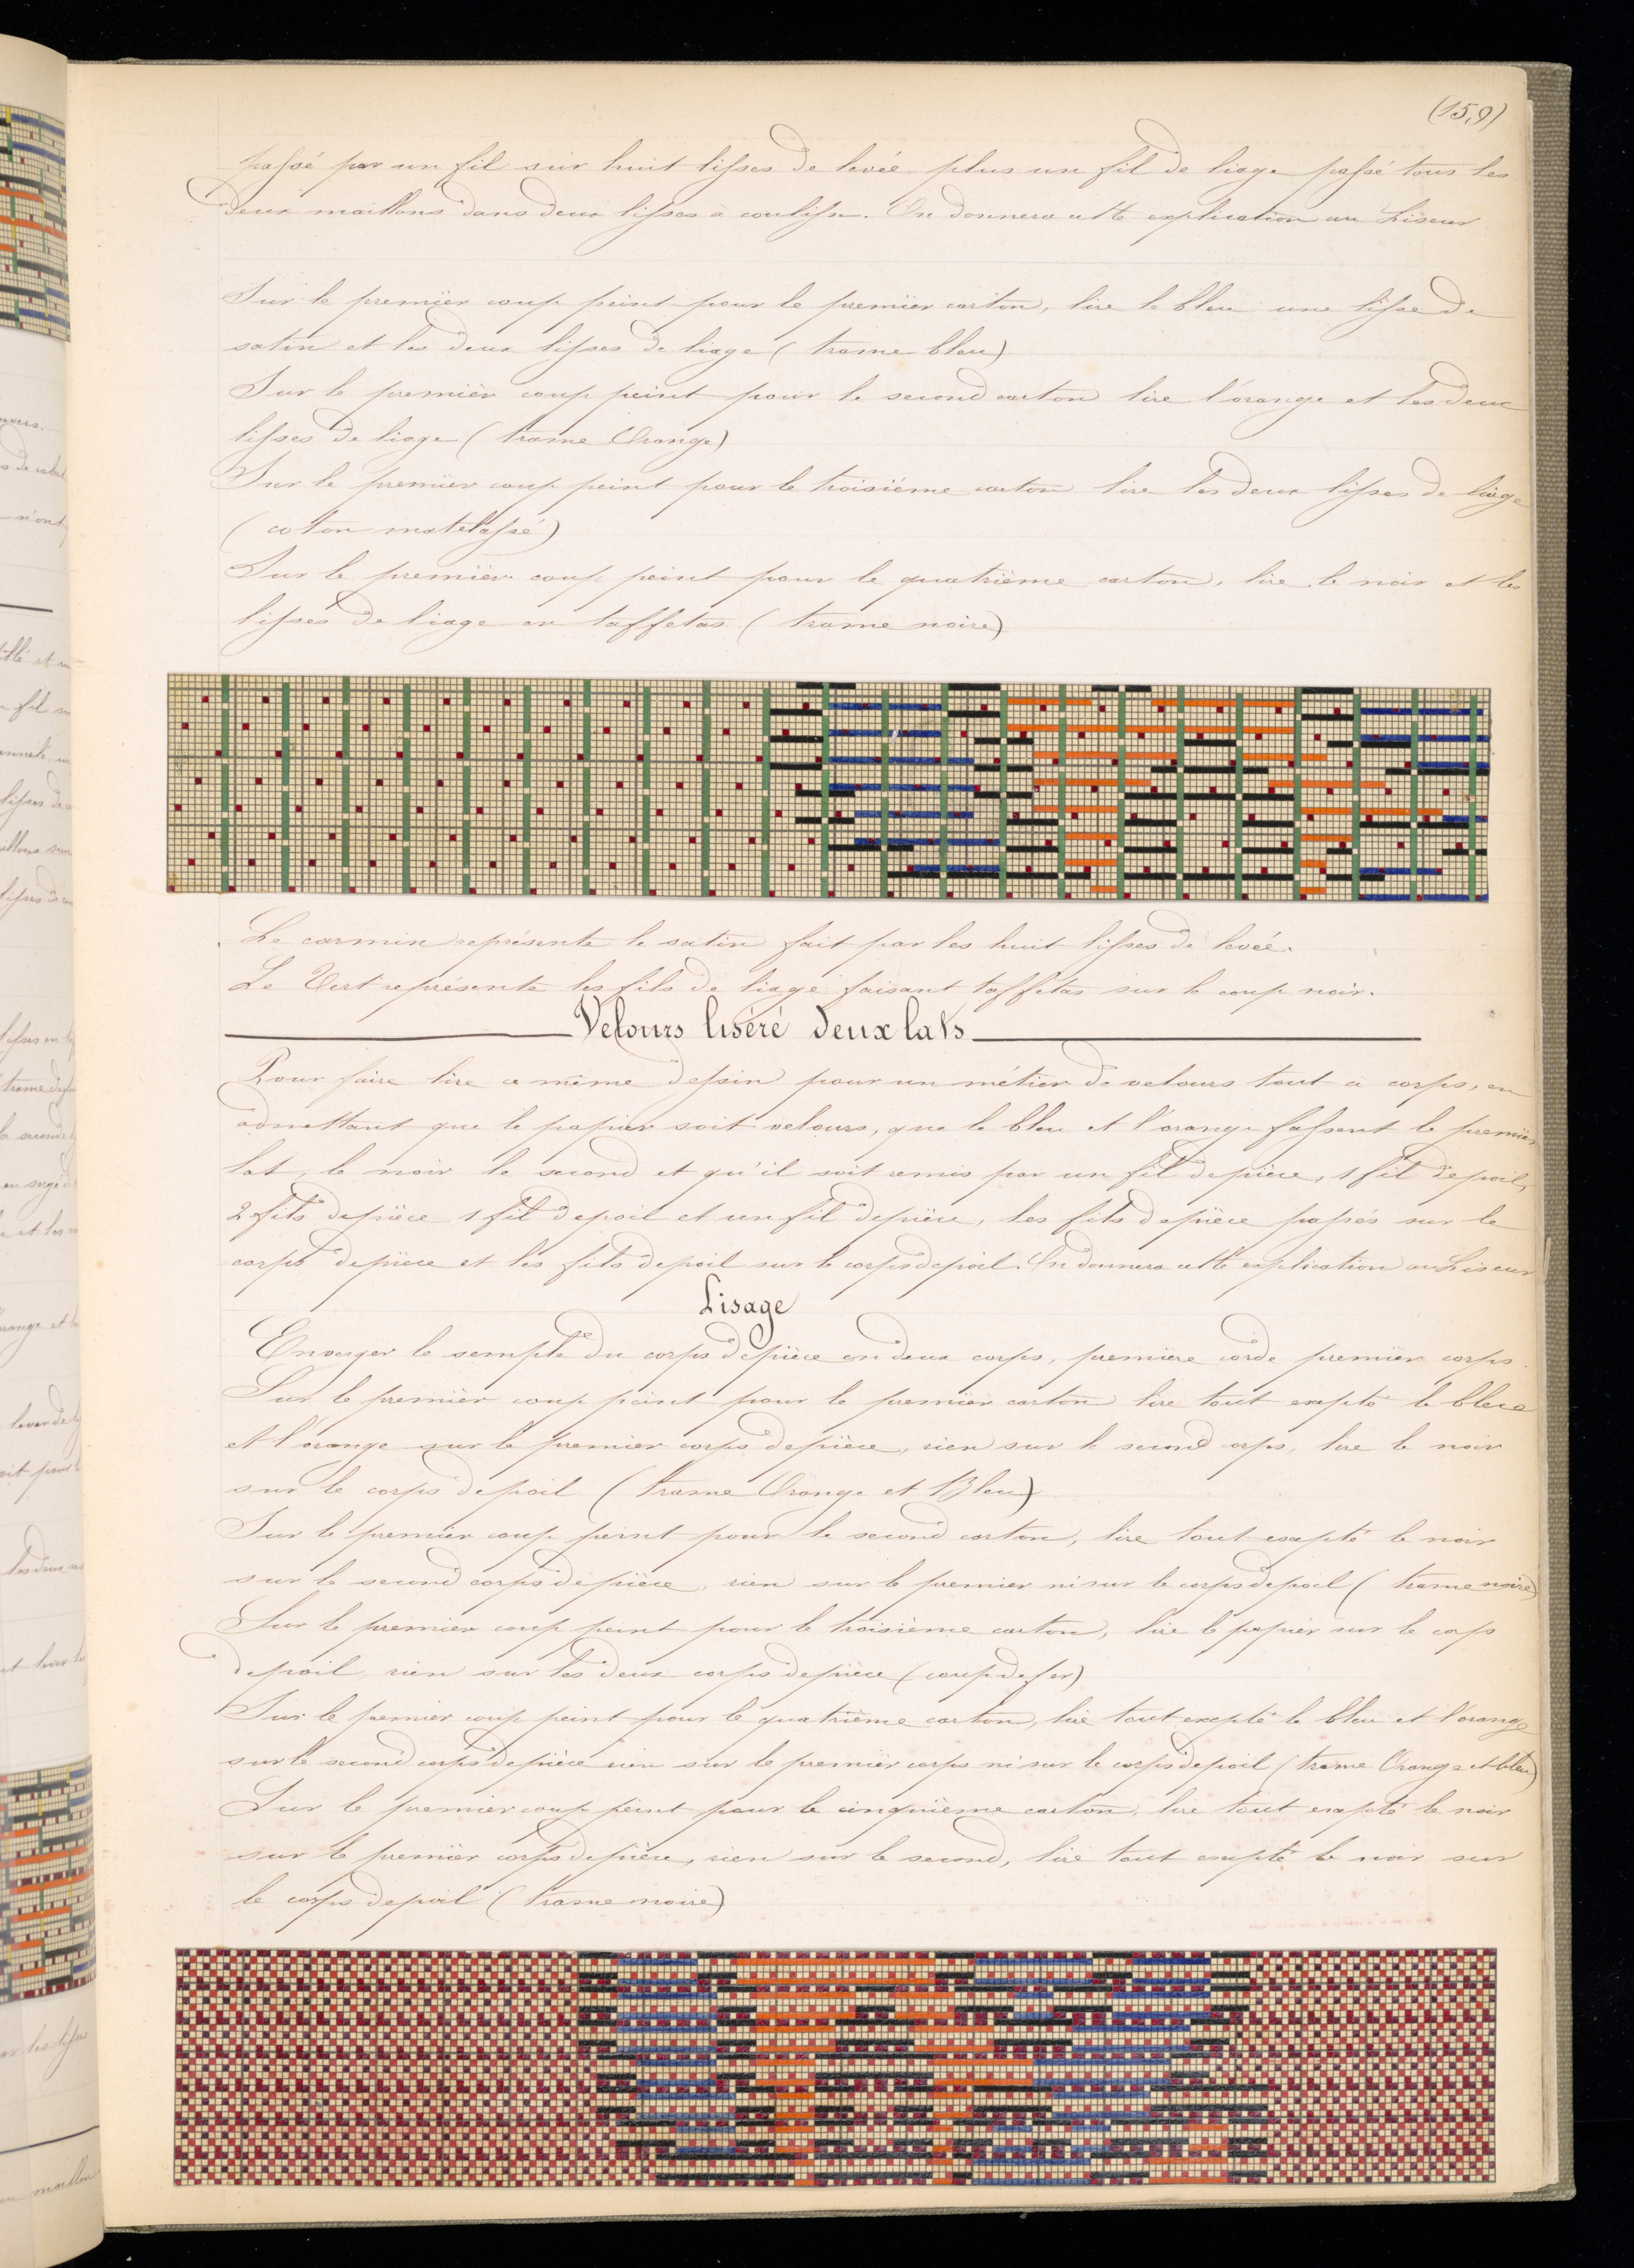 (159)
passé par un fil sur huit lisses de levée plus un fil de liage passé tous les
deux maillons dans deux lisses à coulisse. On donnera cette explication au Liseur
Sur le premier coup peint pour le premier carton, lire le bleu une lisse de
satin et les deux lisses de liage (trame bleu)
Sur le premier coup peint pour le second carton lire l'orange et les deux
lisses de liage (trame Orange)
Sur le premier coup peint pour le troisième carton lire les deux lisses de liage
(coton matelassé)
Sur le premier coup peint pour le quatrième carton, lire le noir et les
lisses de liage en taffetas (trame noire)
Le carmin représente le satin fait par les huit lisses de levée.
Le Vert représente les fils de liage faisant taffetas sur le coup noir.
Velours liséré deux lats
Pour faire lire ce même dessin pour un métier de velours tout à corps, en
admettant que le papier soit velours, que le bleu et l'orange fassent le premier
lat, le noir le second et qu'il soit remis par un fil de pièce, 1 fil de poil,
2 fils de pièce 1 fil de poil et un fil de pièce, les fils de pièce passés sur le
corps de pièce et les fils de poil sur le corps de poil. On donnera cette explication au Liseur
Lisage
Enverger le semple du corps de pièce en deux corps, première corde premier corps.
Sur le premier coup peint pour le premier carton lire tout excepté le bleu
et l'orange sur le premier corps de pièce, rien sur le second corps, lire le noir
sur le corps de poil (trame Orange et Bleu)
Sur le premier coup peint pour le second carton, lire tout excepté le noir
sur le second corps de pièce, rien sur le premier ni sur le corps de poil (trame noire)
Sur le premier coup peint pour le troisième carton, lire le papier sur le corps
de poil, rien sur les deux corps de pièce (coup de fer)
Sur le premier coup peint pour le quatrième carton, lire tout excepté le bleu et l'orange
sur le second corps de pièce rien sur le premier corps ni sur le corps de poil (trame Orange et bleu)
Sur le premier coup peint pour le cinquième carton, lire tout excepté le noir
sur le premier corps de pièce, rien sur le second, lire tout excepté le noir sur
le corps de poil (trame noire)